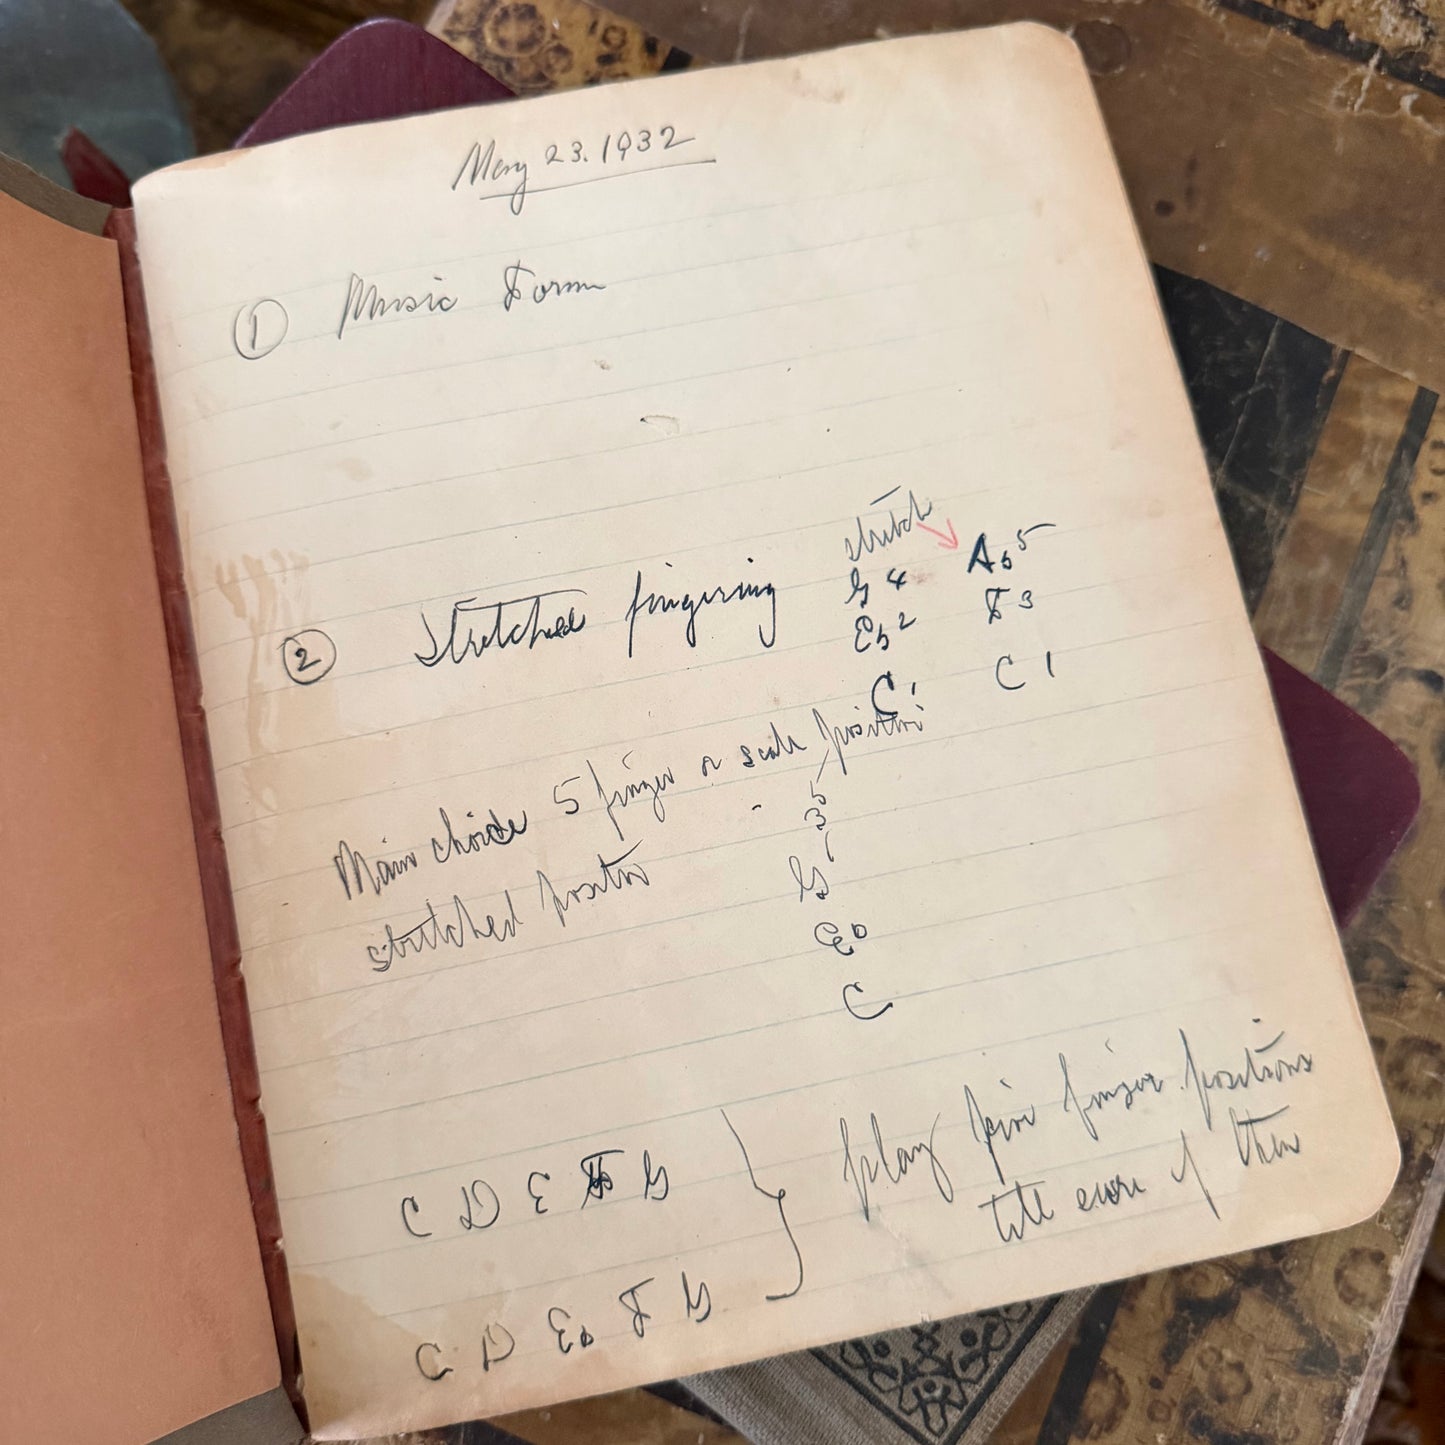 May 23. 1932
① Music Form
stretch
G 4 A♭ 5
② Stretched fingering E♭ 2 F 3
C 1 C 1
Main chords 5 finger or scale position
stretched position
5
3
1
G
E♭
C
C D E F G
C D E♭ F G
play five finger positions
till sure of them